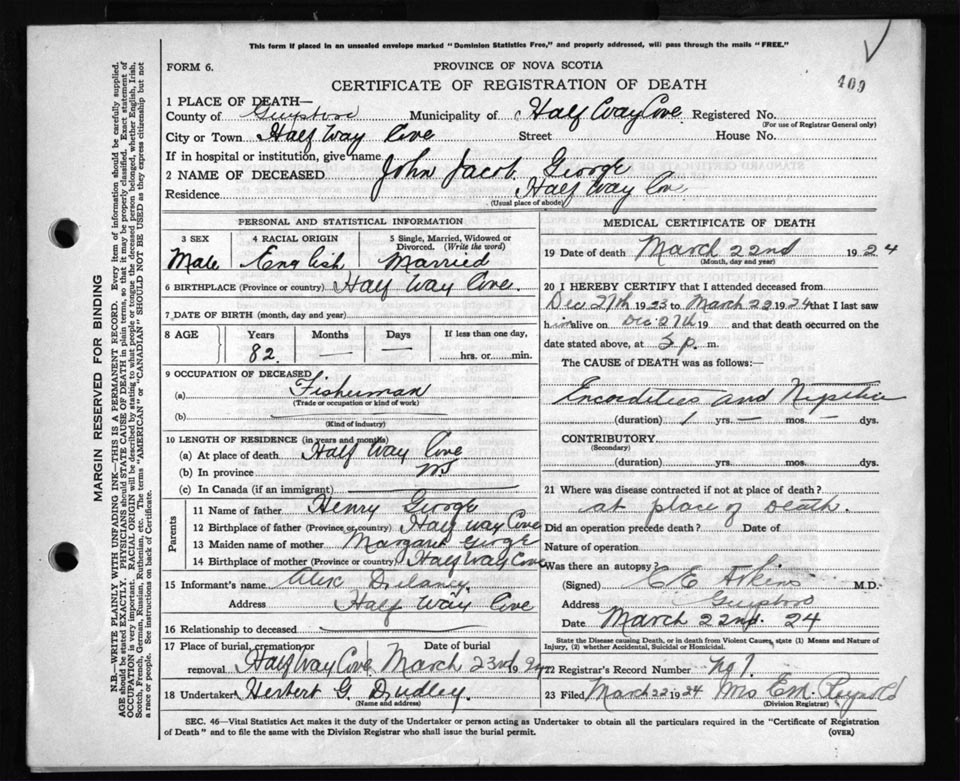 This form if placed in an unsealed envelope marked "Dominion Statistics Free," and properly addressed, will pass through the mails "FREE."
FORM 6.
PROVINCE OF NOVA SCOTIA
CERTIFICATE OF REGISTRATION OF DEATH
409
1 PLACE OF DEATH—
County of Guysboro Municipality of Half Way Cove Registered No.
(For use of Registrar General only)
City or Town Half Way Cove Street House No.
If in hospital or institution, give name
2 NAME OF DECEASED John Jacob George
Residence Half Way Cove
(Usual place of abode)
PERSONAL AND STATISTICAL INFORMATION
3 SEX
Male
4 RACIAL ORIGIN
English
5 Single, Married, Widowed or Divorced. (Write the word)
Married
6 BIRTHPLACE (Province or country) Half Way Cove.
7 DATE OF BIRTH (month, day and year)
8 AGE Years Months Days If less than one day,
82 — — hrs. or min.
9 OCCUPATION OF DECEASED
(a) Fisherman
(Trade or occupation or kind of work)
(b)
(Kind of industry)
10 LENGTH OF RESIDENCE (in years and months)
(a) At place of death Half Way Cove
(b) In province NS
(c) In Canada (if an immigrant)
Parents
11 Name of father Henry George
12 Birthplace of father (Province or country) Half Way Cove
13 Maiden name of mother Margaret George
14 Birthplace of mother (Province or country) Half Way Cove
15 Informant's name Alex Delaney
Address Half Way Cove
16 Relationship to deceased
17 Place of burial, cremation or Date of burial
removal Half Way Cove March 23rd 1924
18 Undertaker Herbert G. Dudley.
(Name and address)
MEDICAL CERTIFICATE OF DEATH
19 Date of death March 22nd 1924
(Month, day and year)
20 I HEREBY CERTIFY that I attended deceased from
Dec 27th 1923 to March 22 1924 that I last saw
him alive on Dec 27th 19 and that death occurred on
date stated above, at 3 p. m.
The CAUSE of DEATH was as follows:—
and
(duration) 1 yrs. — mos. — dys.
CONTRIBUTORY
(Secondary)
(duration) yrs. mos. dys.
21 Where was disease contracted if not at place of death?
at place of Death.
Did an operation precede death? Date of
Nature of operation
Was there an autopsy?
(Signed) E E M.D.
Address Guysboro
Date March 22nd. 24
State the Disease causing Death, or in death from Violent Causes, state (1) Means and Nature of Injury, (2) whether Accidental, Suicidal or Homicidal.
22 Registrar's Record Number No 1.
23 Filed March 22 1924 Mrs E M Reynolds
(Division Registrar)
SEC. 46—Vital Statistics Act makes it the duty of the Undertaker or person acting as Undertaker to obtain all the particulars required in the "Certificate of Registration
of Death" and to file the same with the Division Registrar who shall issue the burial permit.
(OVER)
MARGIN RESERVED FOR BINDING
N.B.—WRITE PLAINLY WITH UNFADING INK—THIS IS A PERMANENT RECORD. Every item of information should be carefully supplied.
AGE should be stated EXACTLY. PHYSICIANS should STATE CAUSE OF DEATH in plain terms, so that it may be properly classified. Exact statement of
OCCUPATION is very important. RACIAL ORIGIN will be described by stating to what people or tongue the deceased person belonged, whether English, Irish,
Scotch, French, German, Russian, Ruthenian, etc. The terms "AMERICAN" or "CANADIAN" SHOULD NOT BE USED as they express citizenship but not
a race or people. See instructions on back of Certificate.